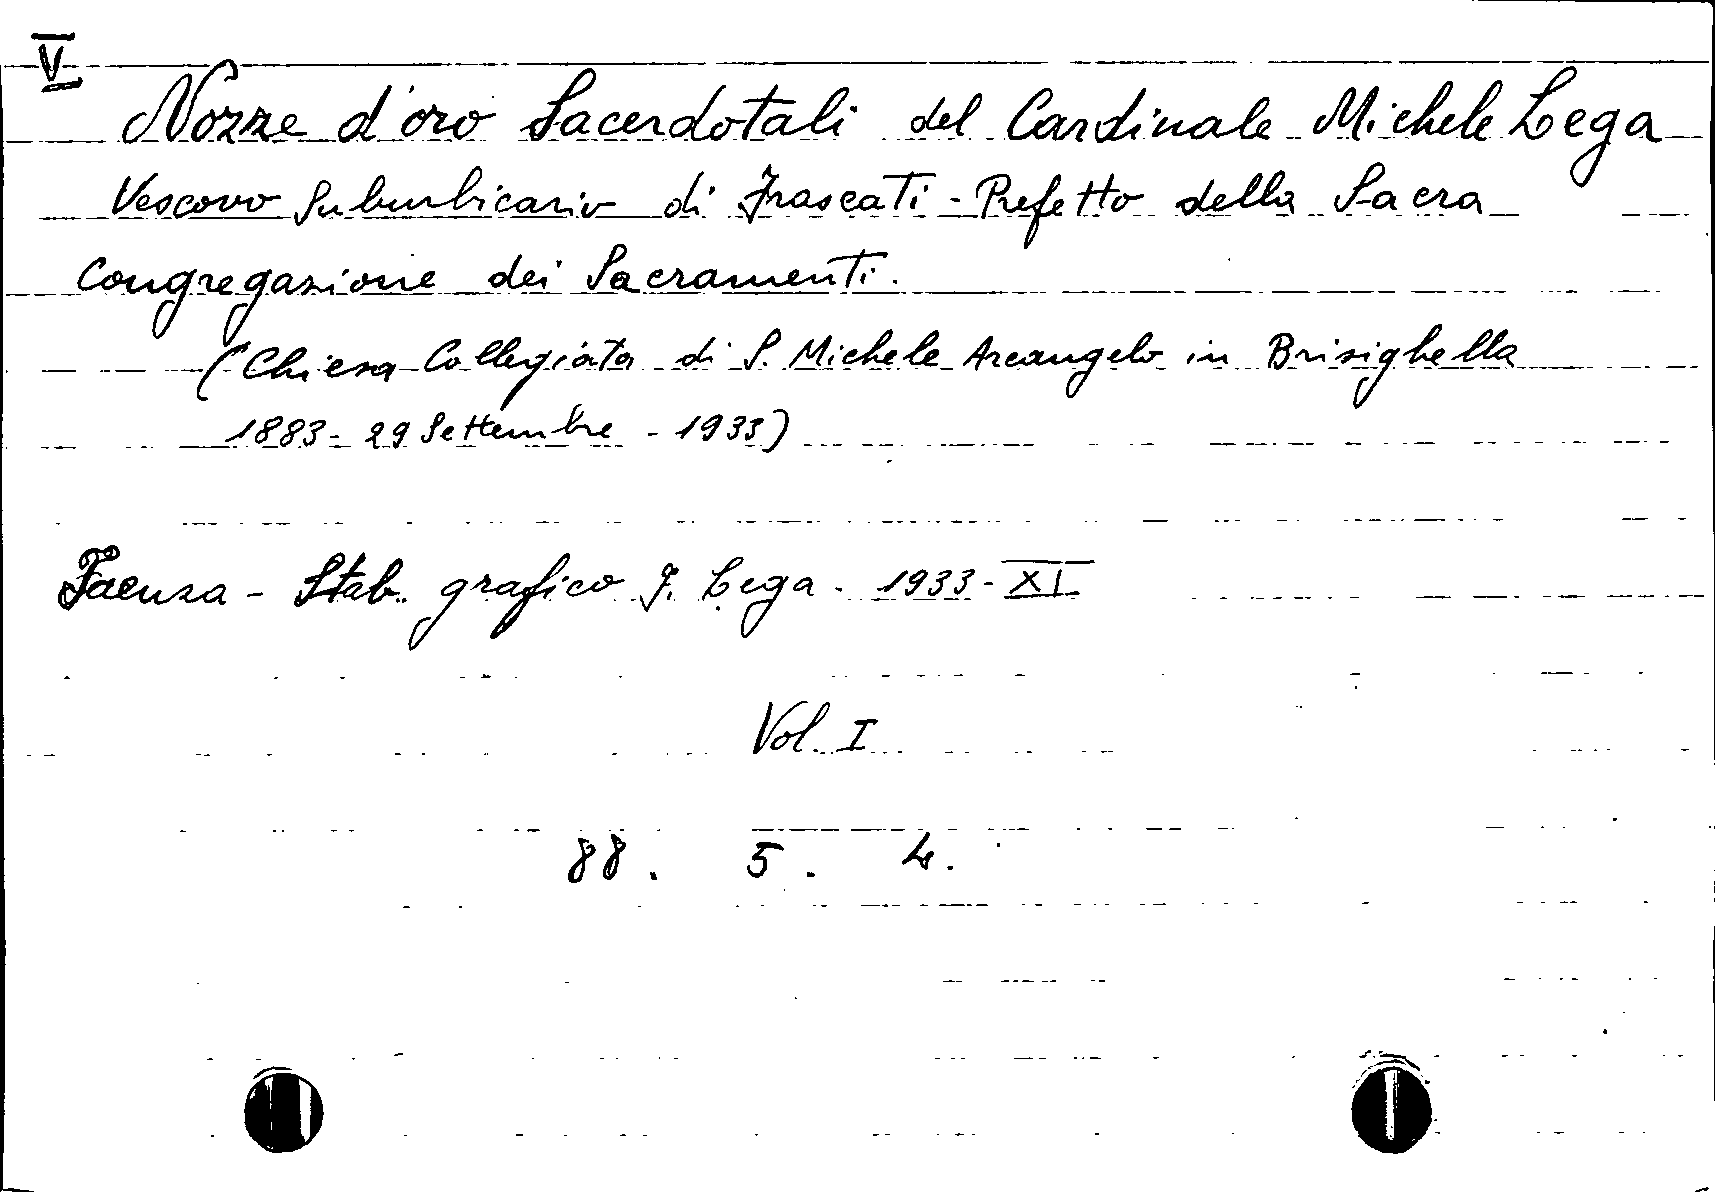 V
Nozze d'oro Sacerdotali del Cardinale Michele Lega
Vescovo Suburbicario di Frascati - Prefetto della Sacra
Congregazione dei Sacramenti.
(Chiesa Collegiata di S. Michele Arcangelo in Brisighella
1883 - 29 Settembre - 1933)
Faenza - Stab. grafico F. Lega - 1933 - XI
Vol. I
88. 5. 4.